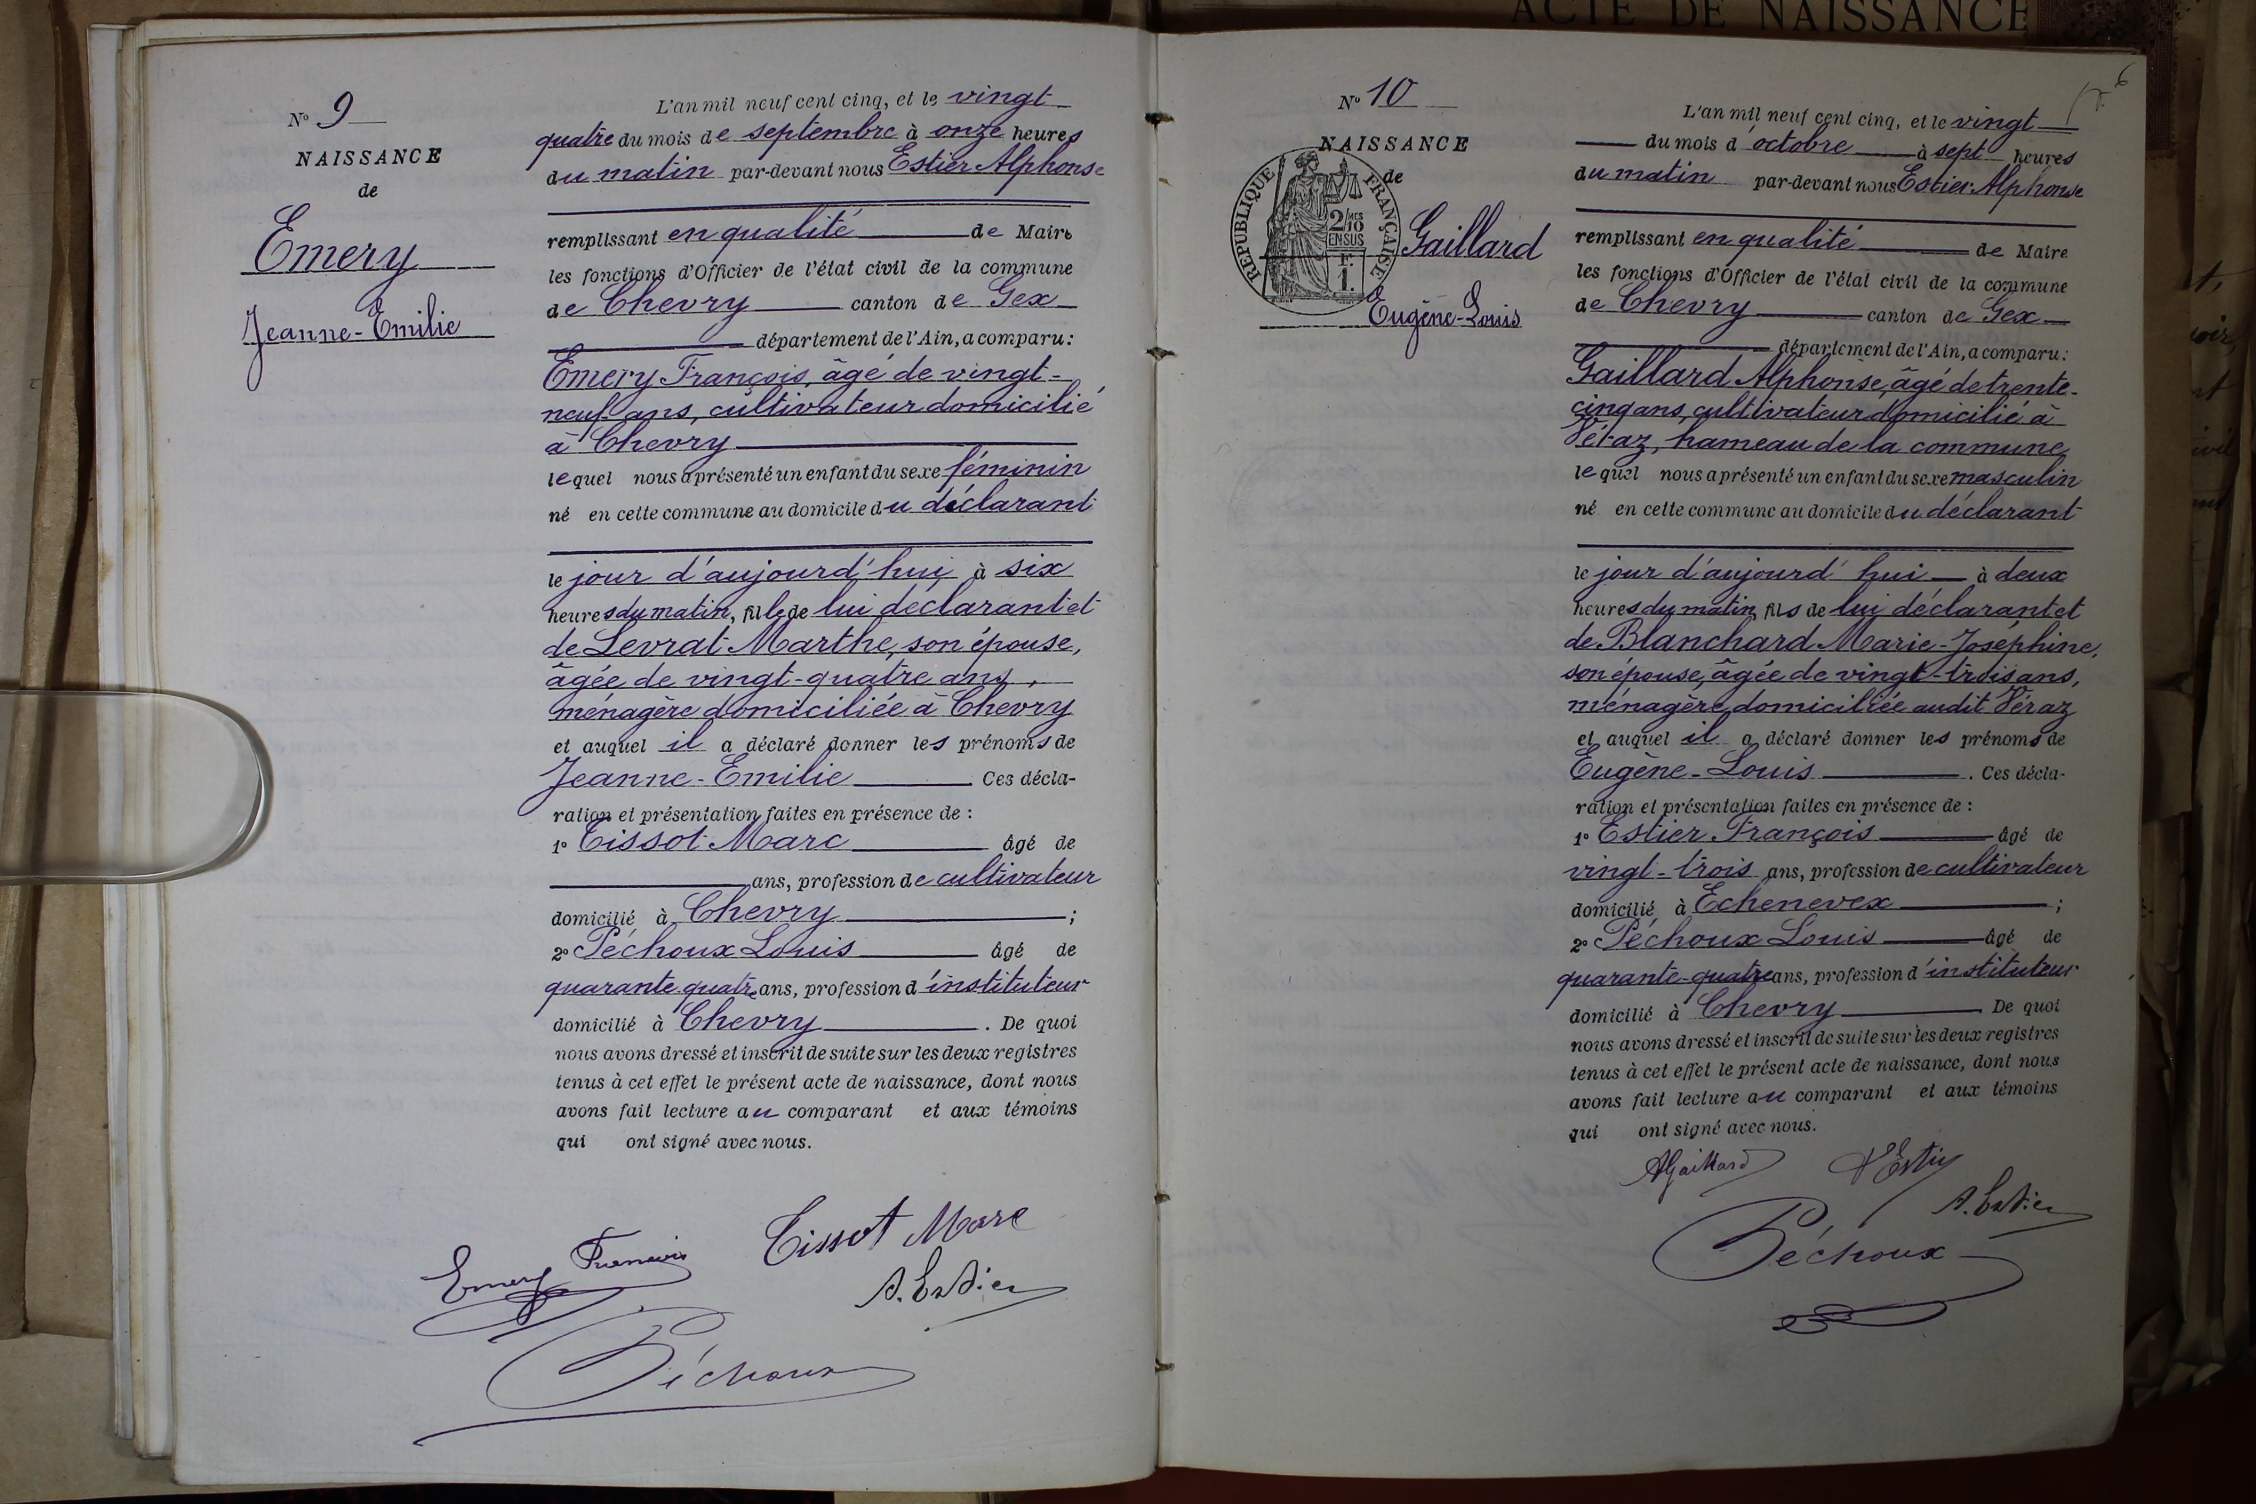 ACTE DE NAISSANCE
N° 9
NAISSANCE
de
Emery
Jeanne-Emilie
L'an mil neuf cent cinq, et le vingt
quatre du mois de septembre à onze heures
du matin par-devant nous Estier Alphonse
remplissant en qualité de Maire
les fonctions d'Officier de l'état civil de la commune
de Chevry canton de Gex
département de l'Ain, a comparu :
Emery François, âgé de vingt-
neuf ans, cultivateur domicilié
à Chevry
lequel nous a présenté un enfant du sexe féminin
né en cette commune au domicile du déclarant
le jour d'aujourd'hui à six
heures du matin, fille de lui déclarant et
de Levrat Marthe, son épouse,
âgée de vingt-quatre ans,
ménagère domiciliée à Chevry
et auquel il a déclaré donner les prénoms de
Jeanne-Emilie. Ces décla-
ration et présentation faites en présence de :
1° Tissot Marc âgé de
ans, profession de cultivateur
domicilié à Chevry ;
2° Péchoux Louis âgé de
quarante quatre ans, profession d'instituteur
domicilié à Chevry. De quoi
nous avons dressé et inscrit de suite sur les deux registres
tenus à cet effet le présent acte de naissance, dont nous
avons fait lecture au comparant et aux témoins
qui ont signé avec nous.
Emery François Tissot Marc
A. Estier
Péchoux
6
N° 10
NAISSANCE
de
RÉPUBLIQUE FRANÇAISE
2/10 MES
EN SUS
F.
1.
Gaillard
Eugène-Louis
L'an mil neuf cent cinq, et le vingt
du mois d'octobre à sept heures
du matin par-devant nous Estier Alphonse
remplissant en qualité de Maire
les fonctions d'Officier de l'état civil de la commune
de Chevry canton de Gex
département de l'Ain, a comparu :
Gaillard Alphonse, âgé de trente-
cinq ans, cultivateur domicilié à
Véraz, hameau de la commune
lequel nous a présenté un enfant du sexe masculin
né en cette commune au domicile du déclarant
le jour d'aujourd'hui à deux
heures du matin, fils de lui déclarant et
de Blanchard Marie-Joséphine,
son épouse, âgée de vingt-trois ans,
ménagère domiciliée audit Véraz
et auquel il a déclaré donner les prénoms de
Eugène-Louis. Ces décla-
ration et présentation faites en présence de :
1° Estier François âgé de
vingt-trois ans, profession de cultivateur
domicilié à Echenevex ;
2° Péchoux Louis âgé de
quarante-quatre ans, profession d'instituteur
domicilié à Chevry. De quoi
nous avons dressé et inscrit de suite sur les deux registres
tenus à cet effet le présent acte de naissance, dont nous
avons fait lecture au comparant et aux témoins
qui ont signé avec nous.
AGaillard Estier
A. Estier
Péchoux